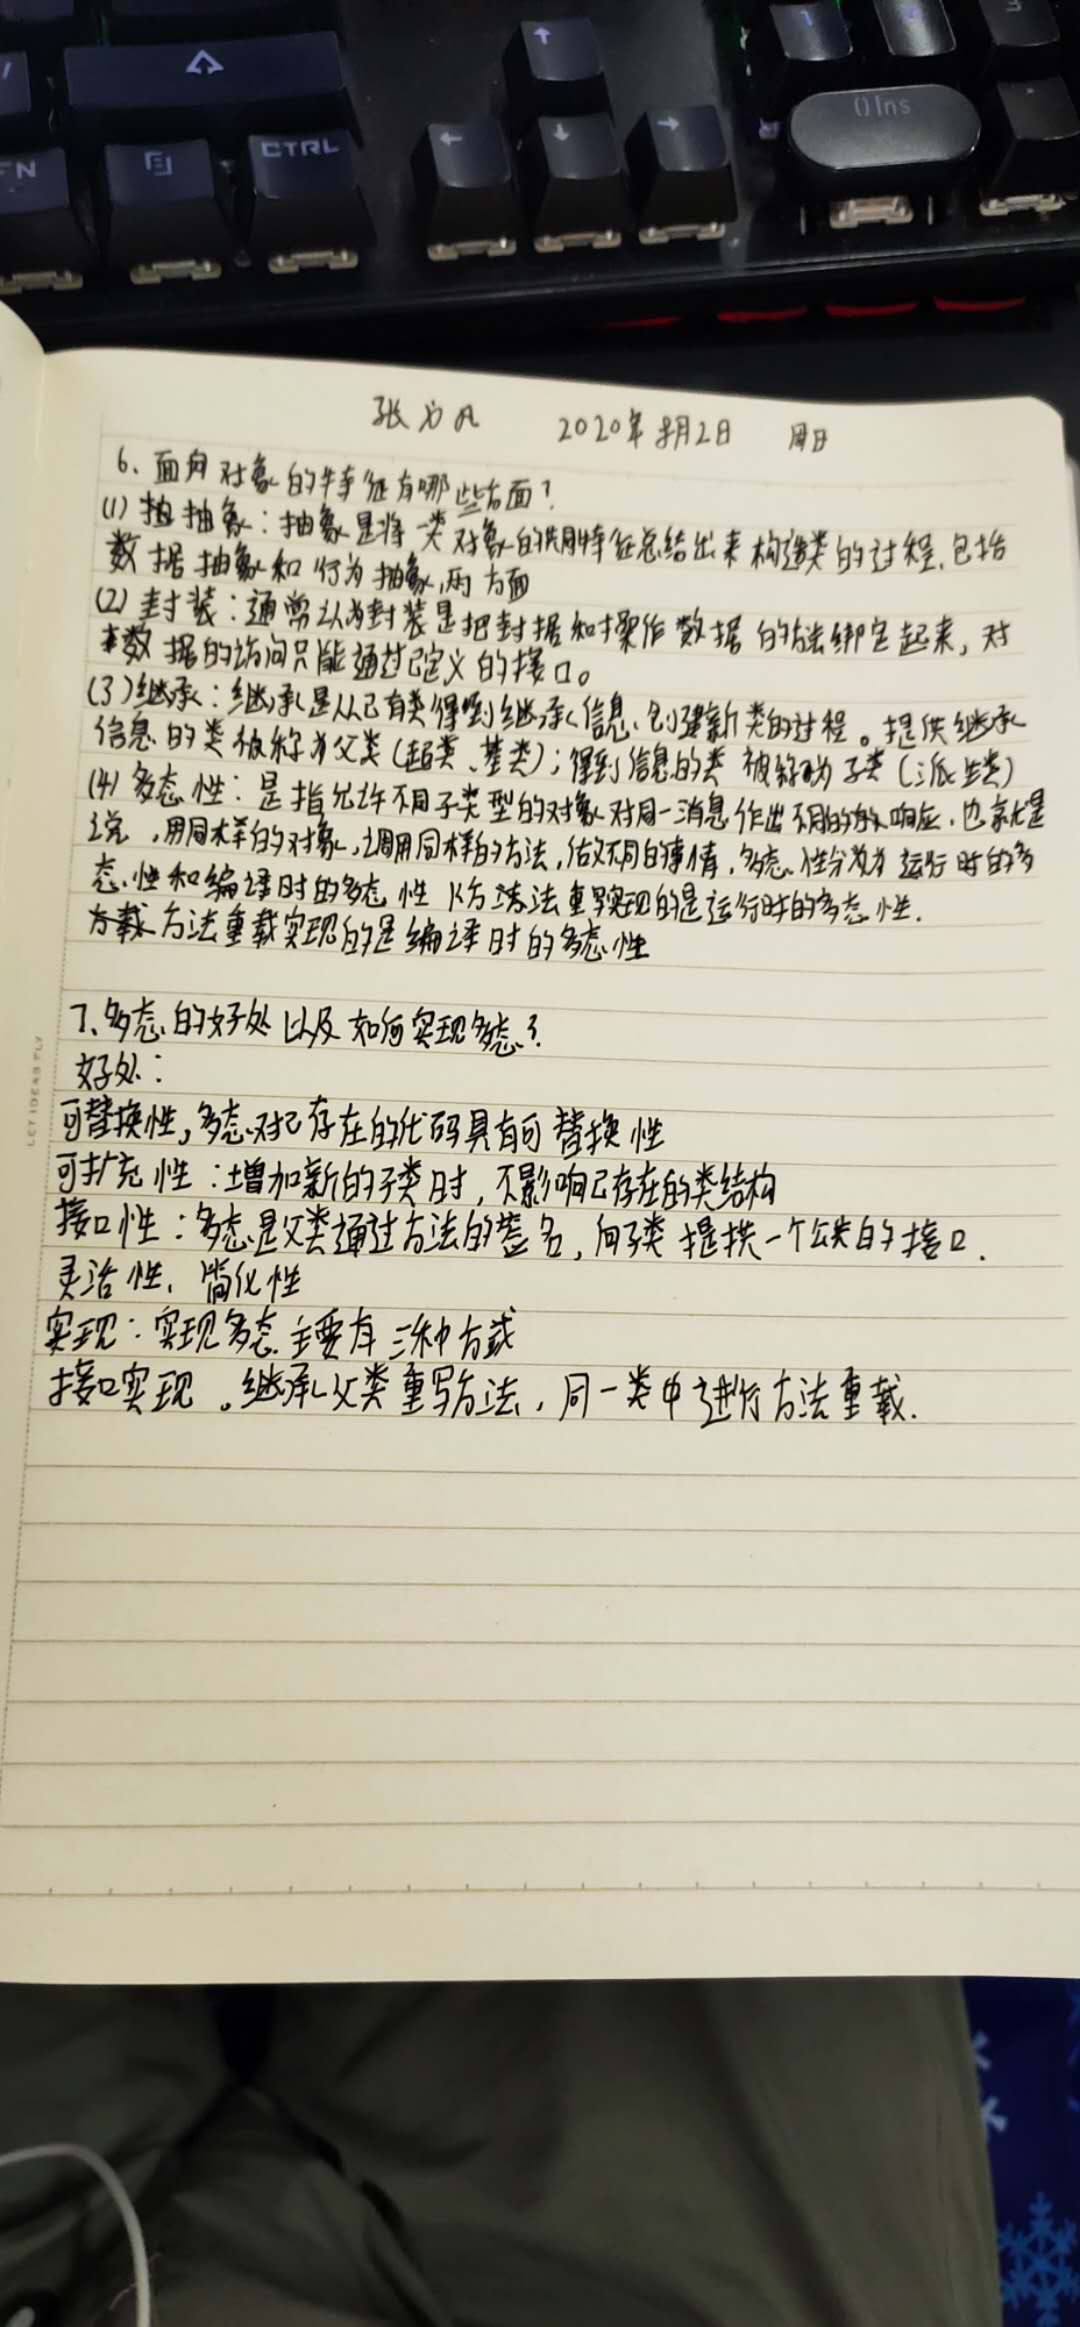 FN
CTRL
0 Ins
张方凡 2020年8月2日 周日
6、面向对象的特征有哪些方面?
(1) 抽象:抽象是将一类对象的共同特征总结出来构造类的过程,包括
数据抽象和行为抽象,两方面
(2) 封装:通常认为封装是把封据和操作数据的方法绑定起来,对
数据的访问只能通过已定义的接口。
(3)继承:继承是从已有类得到继承信息、创建新类的过程。提供继承
信息的类被称为父类(超类、基类);得到信息的类被称为子类(派生类)
(4) 多态性:是指允许不同子类型的对象对同一消息作出不同的响应,也就是
说,用同样的对象,调用同样的方法,做不同的事情,多态性分为运行时的多
态性和编译时的多态性 方法重写实现的是运行时的多态性.
方法重载实现的是编译时的多态性
7、多态的好处以及如何实现多态?
好处:
可替换性,多态对已存在的代码具有可替换性
可扩充性:增加新的子类时,不影响已存在的类结构
接口性:多态是父类通过方法的签名,向子类提供一个公共的接口.
灵活性、简化性
实现:实现多态主要有三种方式
接口实现。继承父类重写方法,同一类中进行方法重载.
LET IDEAS FLY